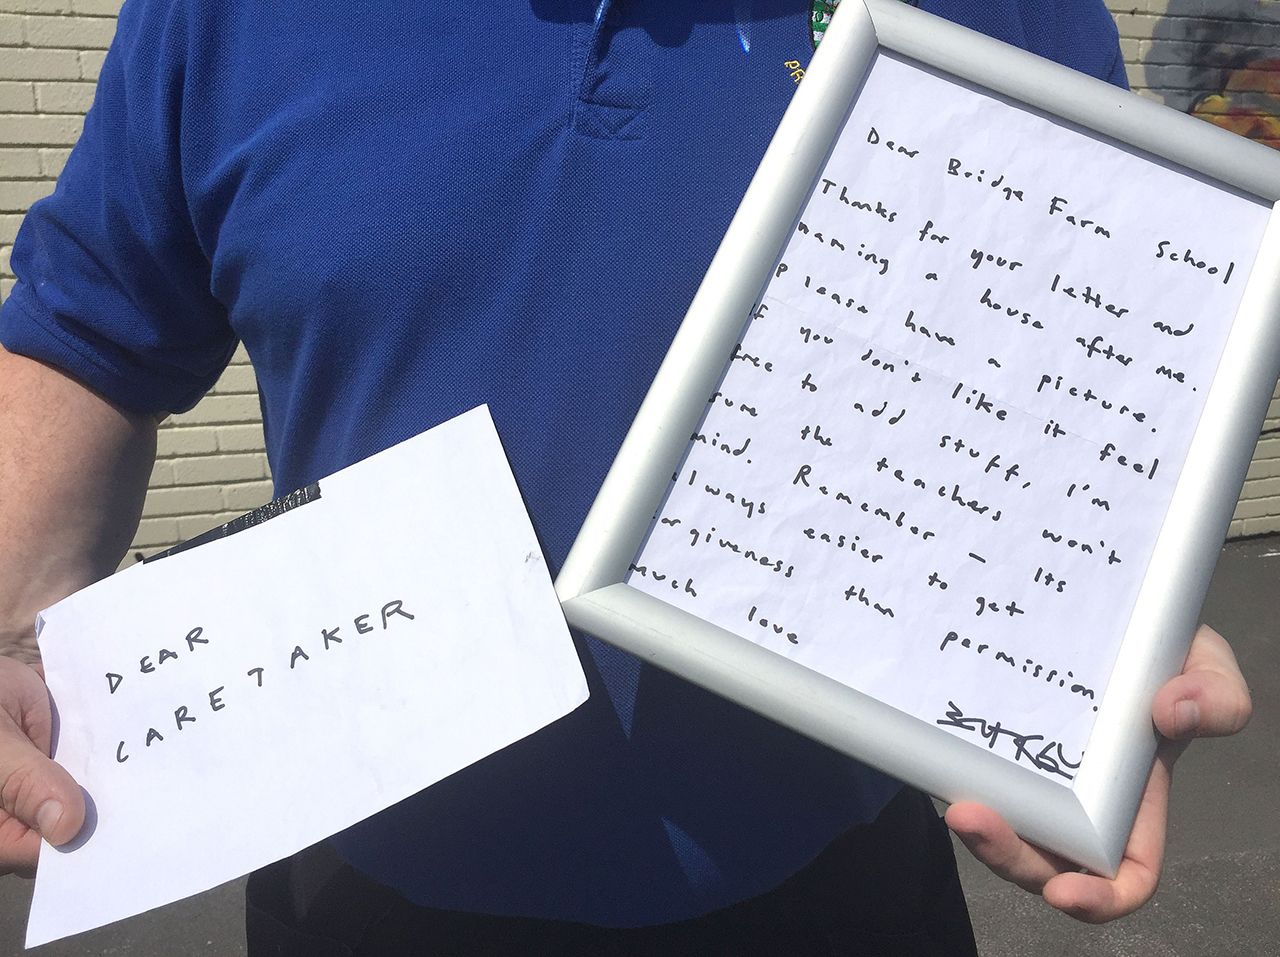 DEAR
CARETAKER
Dear Bridge Farm School
Thanks for your letter and
naming a house after me.
Please have a picture.
if you don't like it feel
free to add stuff, I'm
sure the teachers won't
mind. Remember – Its
always easier to get
forgiveness than permission.
much love